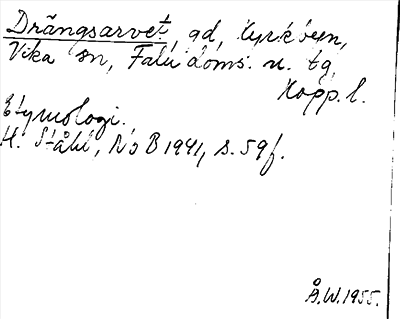 Drängsarvet, gd, Kyrkbyn,
Vika sn, Falu doms. n. tg
Kopp. l.
Etymologi.
H. Ståhl, NoB 1941, s. 59 f.
Å.W. 1955.